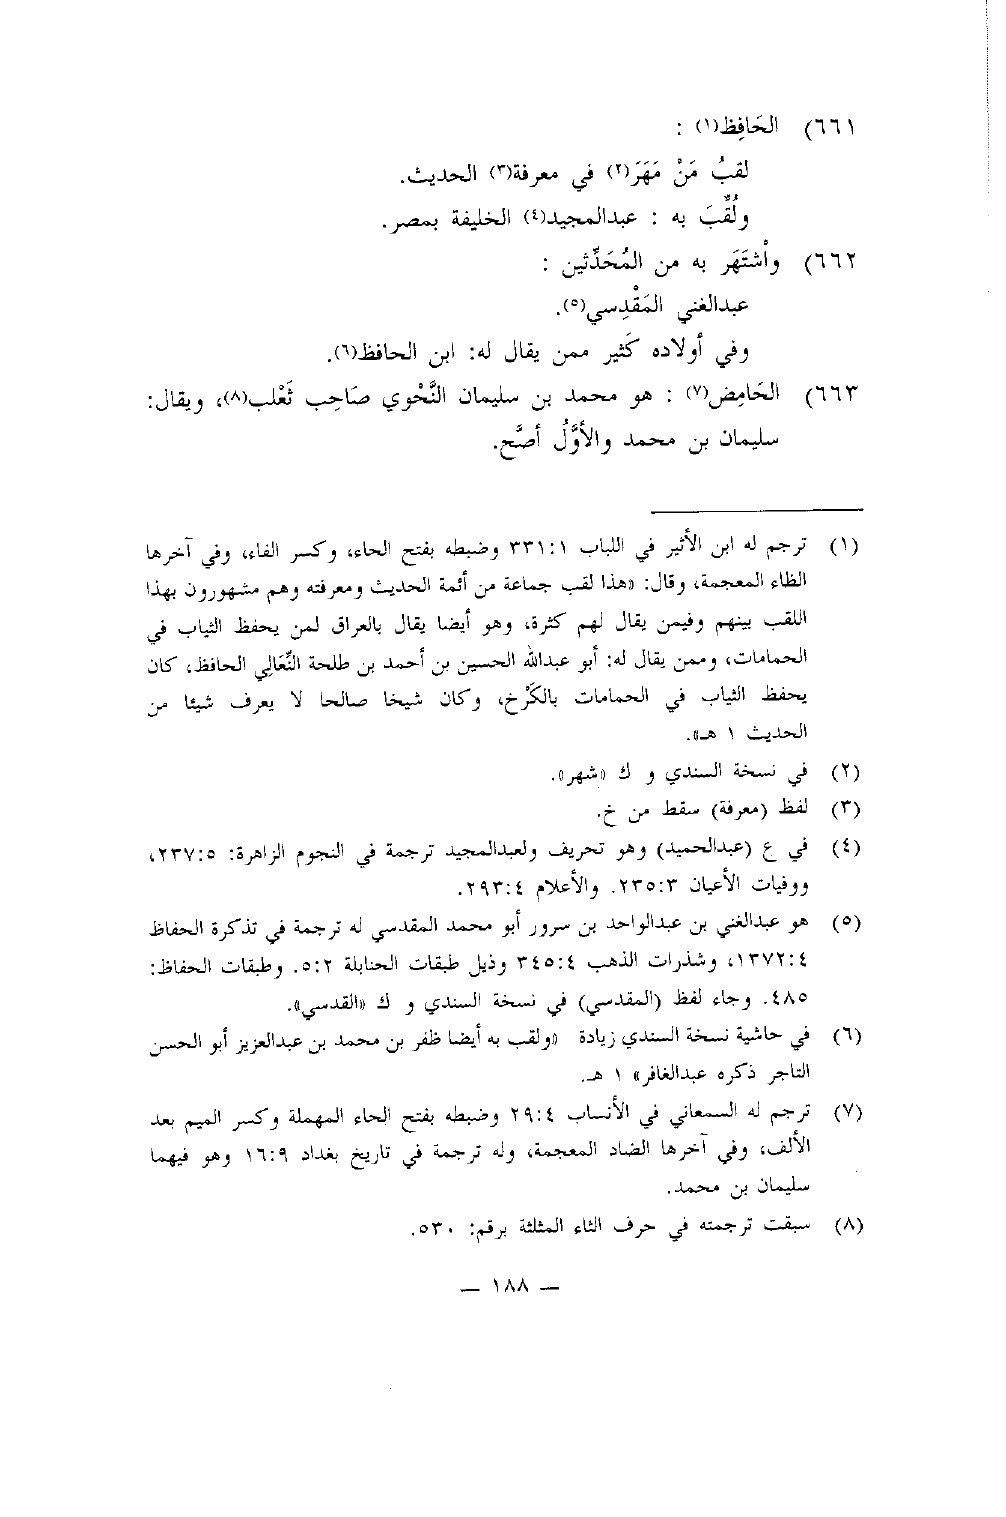 ٦٦١) الحَافِظ(١) :
لقبُ مَنْ مَهَرَ(٢) في معرفة(٣) الحديث.
ولُقِّبَ به : عبدالمجيد(٤) الخليفة بمصر.
٦٦٢) وأشتَهَر به من المُحَدِّثين :
عبدالغني المَقْدِسي(٥).
وفي أولاده كَثير ممن يقال له: ابن الحافظ(٦).
٦٦٣) الحَامِض(٧) : هو محمد بن سليمان النَّحْوي صَاحِب ثَعْلب(٨)، ويقال:
سليمان بن محمد والأوَّلُ أصَّح.
(١) ترجم له ابن الأثير في اللباب ٣٣١:١ وضبطه بفتح الحاء، وكسر الفاء، وفي آخرها
الظاء المعجمة، وقال: «هذا لقب جماعة من أئمة الحديث ومعرفته وهم مشهورون بهذا
اللقب بينهم وفيمن يقال لهم كثرة، وهو أيضا يقال بالعراق لمن يحفظ الثياب في
الحمامات، وممن يقال له: أبو عبدالله الحسين بن أحمد بن طلحة النِّعَالِي الحافظ، كان
يحفظ الثياب في الحمامات بالكَرْخ، وكان شيخا صالحا لا يعرف شيئا من
الحديث ١ هـ».
(٢) في نسخة السندي و ك «شهر».
(٣) لفظ (معرفة) سقط من خ.
(٤) في ع (عبدالحميد) وهو تحريف ولعبدالمجيد ترجمة في النجوم الزاهرة: ٢٣٧:٥،
ووفيات الأعيان ٢٣٥:٣. والأعلام ٢٩٣:٤.
(٥) هو عبدالغني بن عبدالواحد بن سرور أبو محمد المقدسي له ترجمة في تذكرة الحفاظ
١٣٧٢:٤، وشذرات الذهب ٣٤٥:٤ وذيل طبقات الحنابلة ٥:٢. وطبقات الحفاظ:
٤٨٥. وجاء لفظ (المقدسي) في نسخة السندي و ك «القدسي».
(٦) في حاشية نسخة السندي زيادة «ولقب به أيضا ظفر بن محمد بن عبدالعزيز أبو الحسن
التاجر ذكره عبدالغافر» ١ هـ.
(٧) ترجم له السمعاني في الأنساب ٢٩:٤ وضبطه بفتح الحاء المهملة وكسر الميم بعد
الألف، وفي آخرها الضاد المعجمة، وله ترجمة في تاريخ بغداد ١٦:٩ وهو فيهما
سليمان بن محمد.
(٨) سبقت ترجمته في حرف الثاء المثلثة برقم: ٥٣٠.
— ١٨٨ —